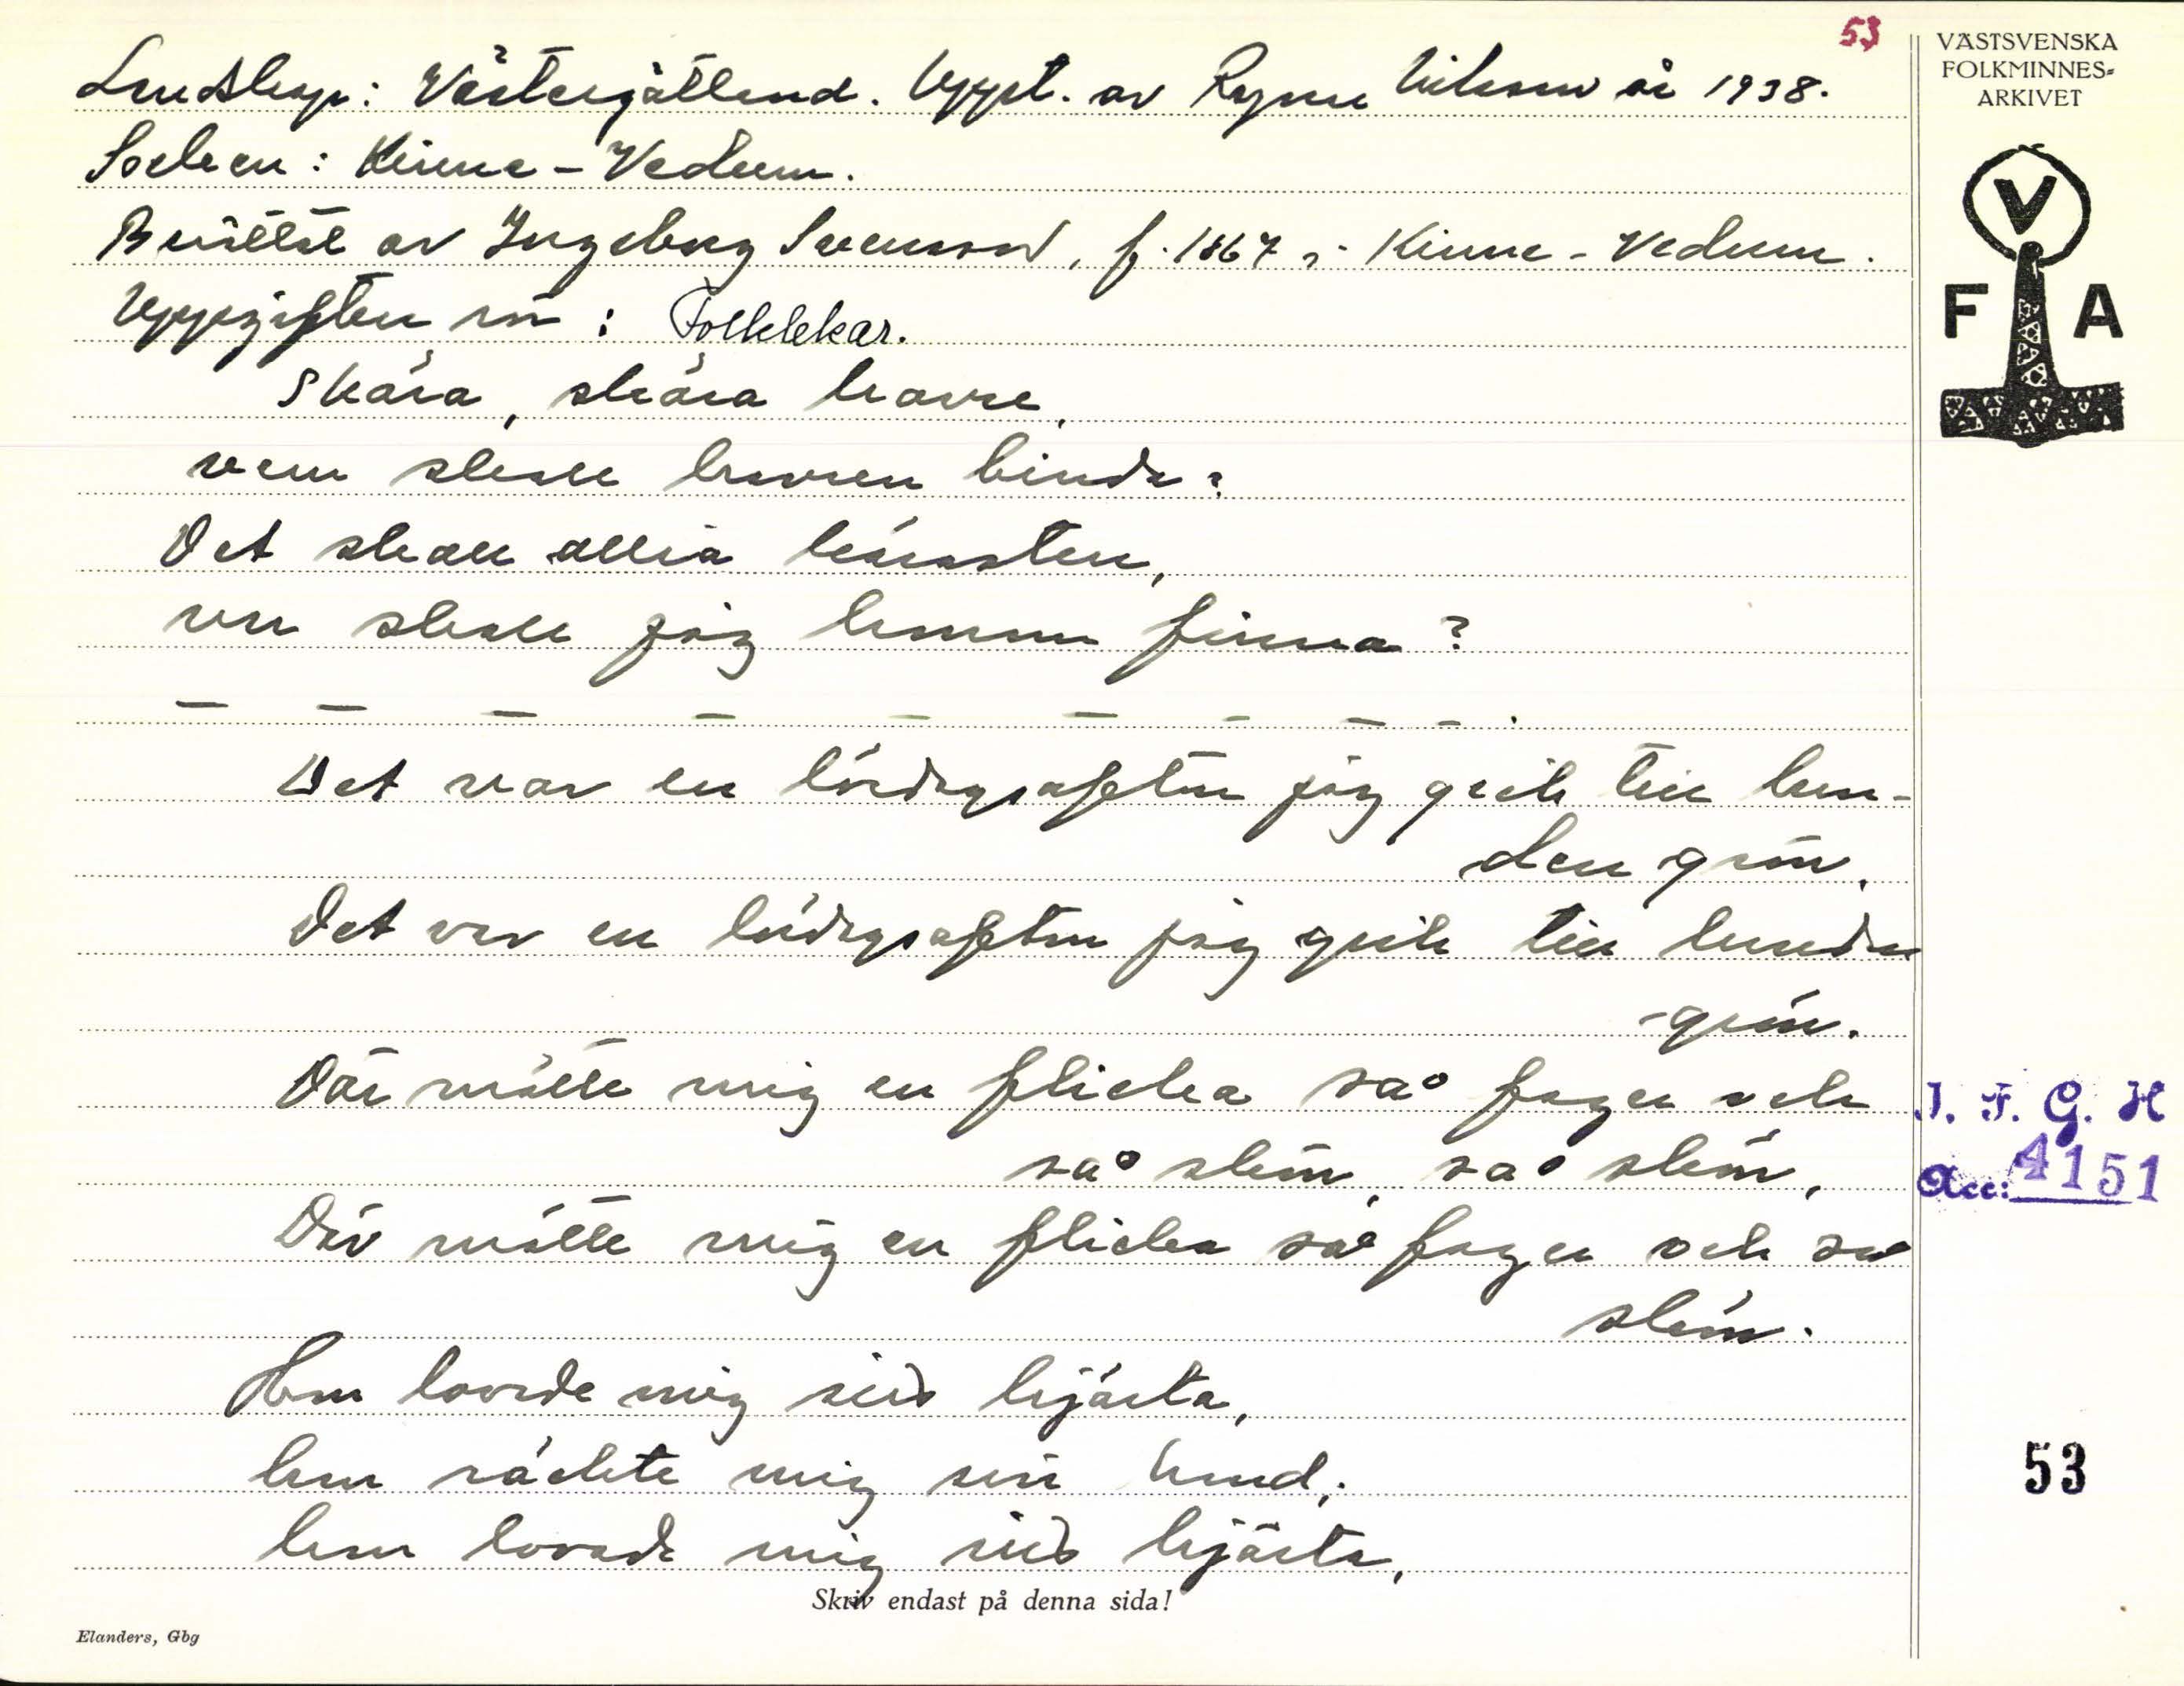 53
Landskap: Västergötland. Uppt. av Ragnar Nilsson år 1938.
Socken: Kinne-Vedum.
Berättat av Ingeborg Svensson, f. 1867 i Kinne-Vedum.
Uppgiften rör: Folklekar.
Skära, skära havre,
vem skall havren binda?
Det skall allra kärasten,
var skall jag honom finna?
— — — — — — — — — .
Det var en lördagsafton jag gick till lun-
den grön,
Det var en lördagsafton jag gick till lunden
-grön.
Där mötte mig en flicka så fager och
så skön, så skön,
Där mötte mig en flicka så fager och så
skön.
Hon lovade mig sitt hjärta,
hon räckte mig sin hand,
hon lovade mig sitt hjärta,
Skriv endast på denna sida!
Elanders, Gbg
VÄSTSVENSKA
FOLKMINNES-
ARKIVET
V
F A
I. F. G. H
Acc: 4151
53